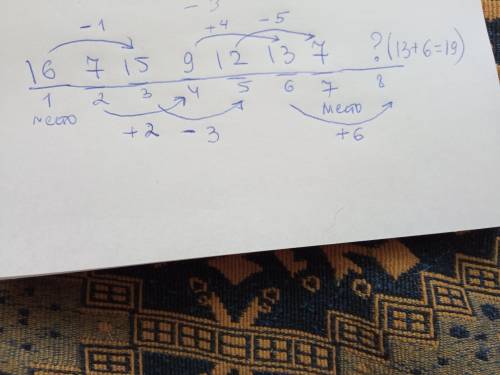 - 3
- 1 +4 - 5
16 7 15 9 12 13 7 ? (13+6=19)
1 2 3 4 5 6 7 8
место место
+2 - 3 +6